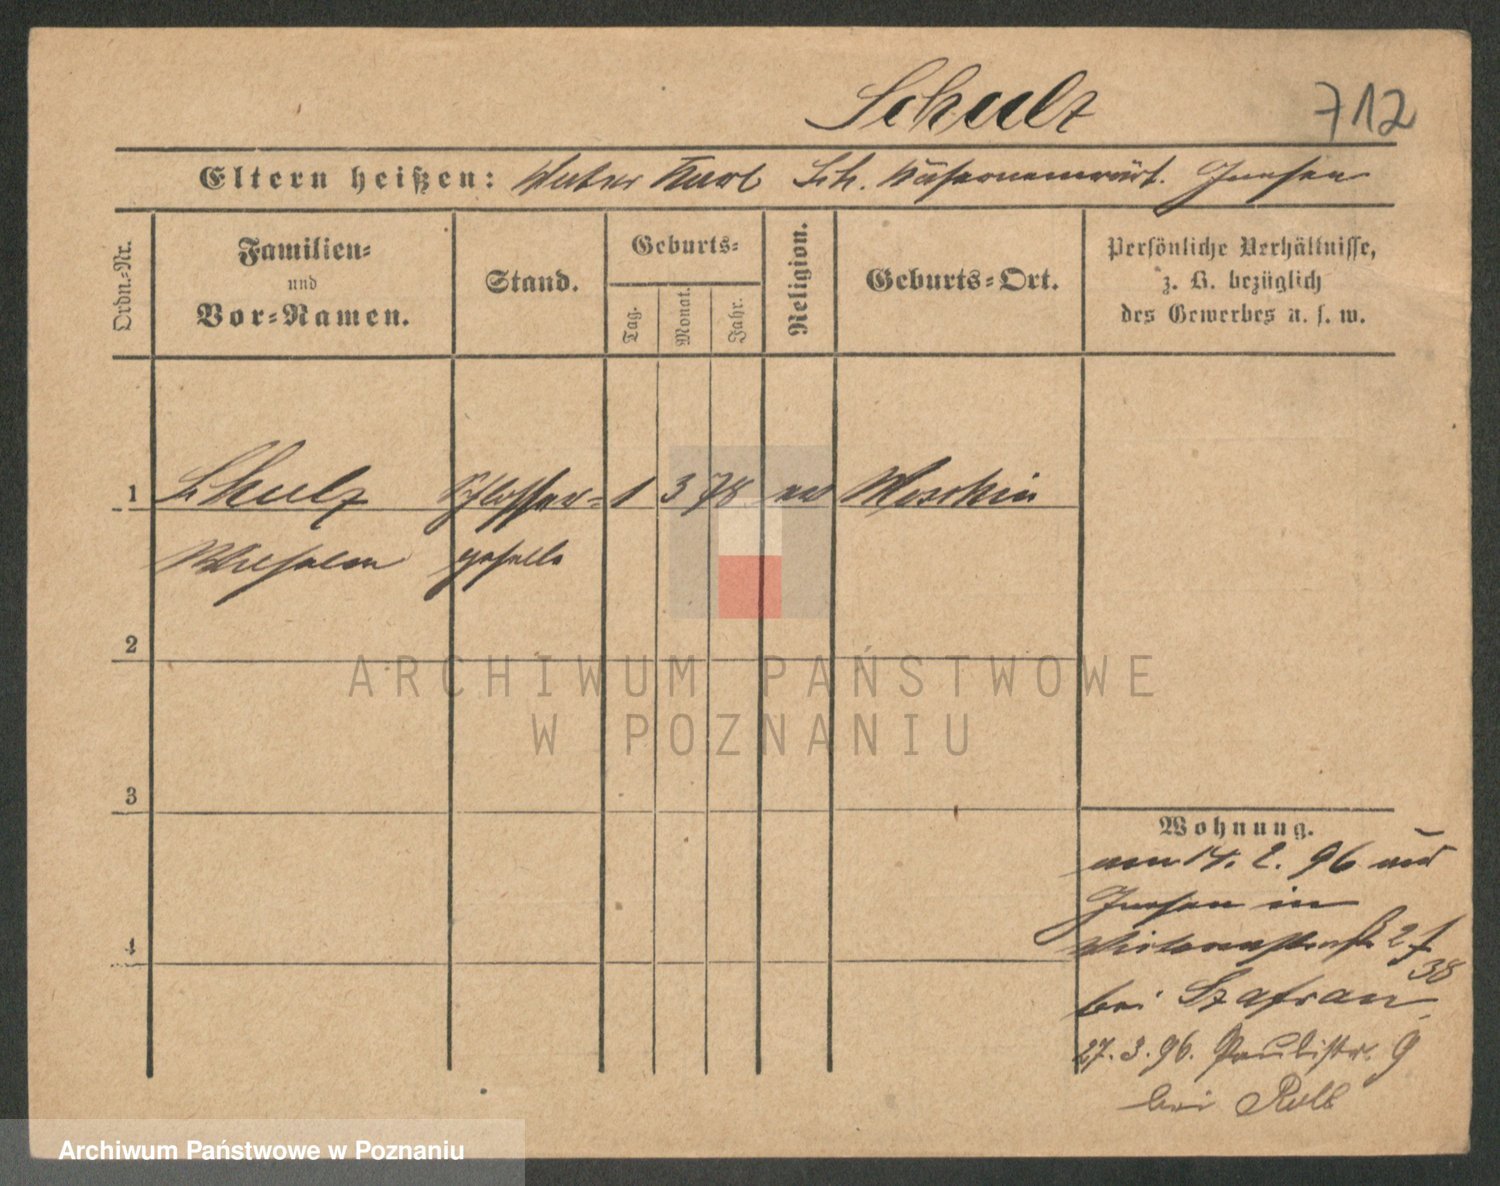 Schulz 712
Eltern heißen: Vater Karl Sch. Kasernenwärt. Gnesen
Ordn.-Nr.
Familien-
und
Vor-Namen.
Stand.
Geburts-
Tag.
Monat.
Jahr.
Religion.
Geburts-Ort.
Persönliche Verhältnisse,
z. B. bezüglich
des Gewerbes u. s. w.
1 Schulz Schlosser- 1 3 78 ev Meschin
Wilhelm geselle
2
3
4
Wohnung.
am 14. 2. 96 aus
Gnesen in
27
38
bei Szafran
27.3.96. Paulistr. 9
bei Rolb
ARCHIWUM PAŃSTWOWE
W POZNANIU
Archiwum Państwowe w Poznaniu